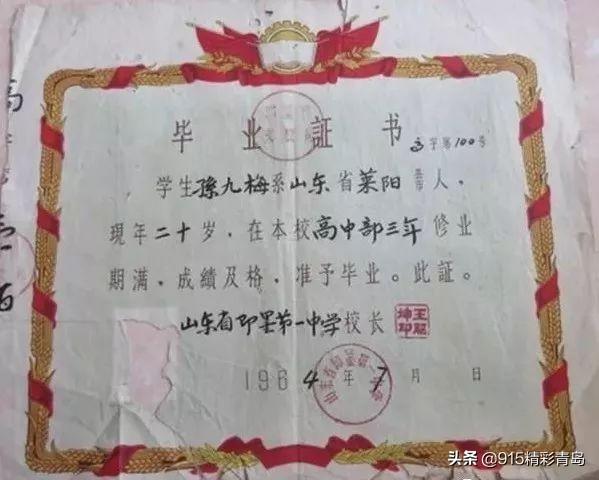 毕业証书
字第100号
学生孫九梅系山东省莱阳县人，
現年二十岁，在本校高中部三年修业
期满，成績及格，准予毕业。此証。
山东省即墨第一中学校长
1964年7月 日
高
头条 @915精彩青岛